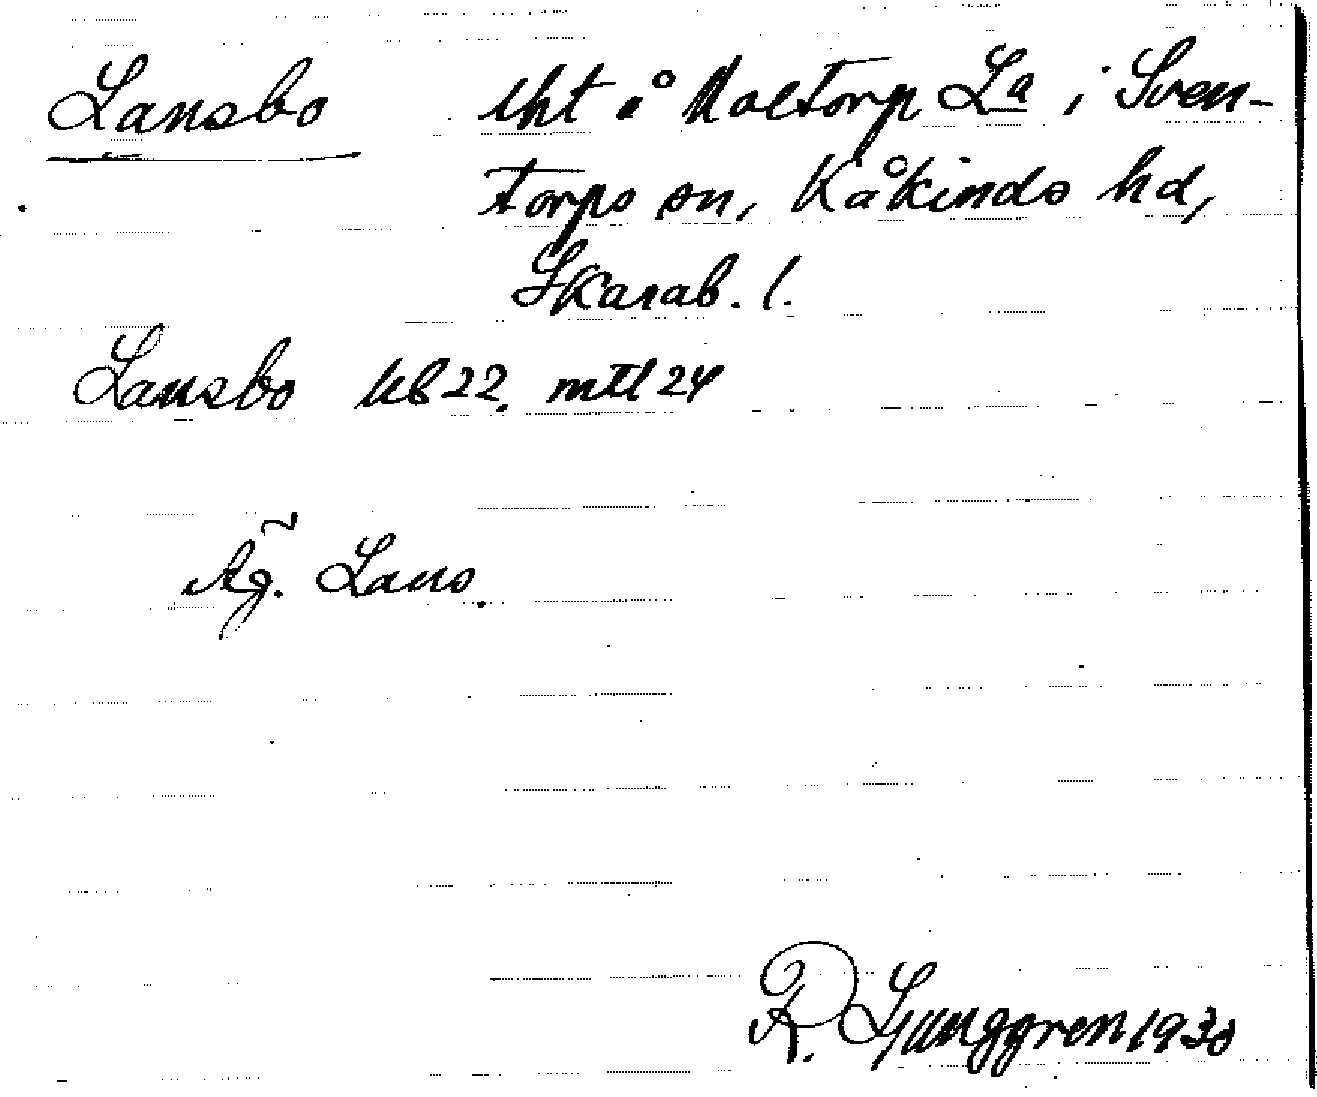 Lansbo lht å Moltorp La i Sven-
torps sn, Kåkinds hd,
Skarab. l.
Lansbo kb 22. mtl 24
Äg. Lans.
R. Ljunggren 1930